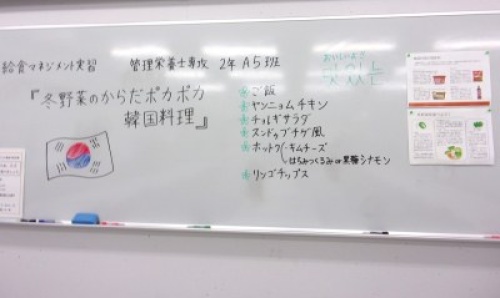 給食マネジメント実習 管理栄養士専攻 2年 A5班
『冬野菜のからだポカポカ
韓国料理』
おいしいよ!
ご飯
ヤンニョムチキン
チョレギサラダ
スンドゥブチゲ風
ホットク キムチーズ
はちみつくるみor黒糖シナモン
リンゴチップス